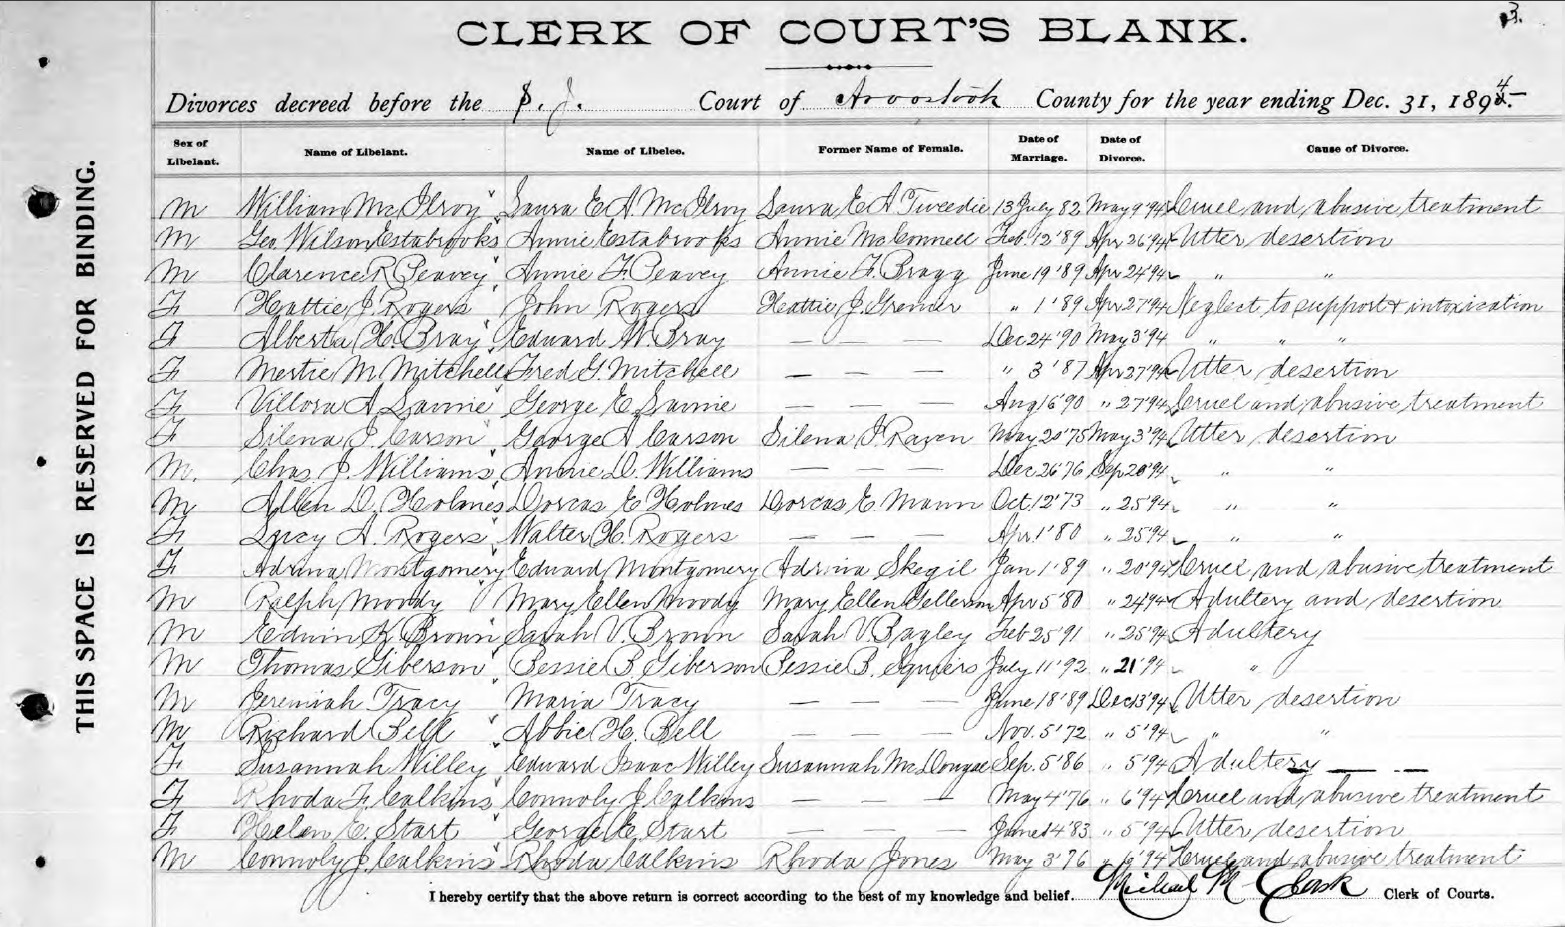 3.
CLERK OF COURT'S BLANK.
Divorces decreed before the S. J. Court of Aroostook County for the year ending Dec. 31, 1894.
Sex of Libelant. Name of Libelant. Name of Libelee. Former Name of Female. Date of Marriage. Date of Divorce. Cause of Divorce.
M William McIlroy Laura E. A. McIlroy Laura E A Tweedie 13 July 82 May 9 '94 Cruel and abusive treatment
M Geo. Wilson Estabrooks Annie Estabrooks Annie McConnell Feb. 12 '89 Apr 26 '94 Utter desertion
M Clarence R Peavey Annie F. Peavey Annie F. Bragg June 19 '89 Apr 24 '94 " "
F Hattie J. Rogers John Rogers Hattie J. " 1 '89 Apr 27 '94 Neglect to support & intoxication
F Alberta H. Bray Edward W. Bray — — — Dec 24 '90 May 3 '94 " " "
F Mertie M. Mitchell Fred G. Mitchell — — — " 3 '87 Apr 27 '94 Utter desertion
F Villora A George E. — — — Aug 16 '90 " 27 '94 Cruel and abusive treatment
F Silena J. Carson George A Carson Silena J. Raven May 20 '75 May 3 '94 Utter desertion
M. Chas. J. Williams Annie D. Williams — — — Dec 26 '76 Sep 20 '94 " "
M Allen D. Holmes Dorcas E Holmes Dorcas E. Mann Oct. 12 '73 " 25 '94 " "
F Lucy A. Rogers Walter H. Rogers — — — Apr. 1 '80 " 25 '94 " "
F Adrina Montgomery Edward Montgomery Adrina Skegil Jan 1 '89 " 20 '94 Cruel and abusive treatment
M Ralph Moody Mary Ellen Moody Mary Ellen Apr 5 '80 " 24 '94 Adultery and desertion
M Edwin K. Brown Sarah V. Brown Sarah V. Bagley Feb 25 '91 " 25 '94 Adultery
M Thomas Giberson Bessie B. Giberson Bessie B. Squiers July 11 '92 " 21 '94 "
M Jeremiah Tracy Maria Tracy — — — June 18 '89 Dec 13 '94 Utter desertion
M Richard Bell Abbie H. Bell — — — Nov. 5 '72 " 5 '94 " "
F Susannah Willey Edward Isaac Willey Susannah McDougal Sep. 5 '86 " 5 '94 Adultery — — —
F Rhoda F. Calkins Connoly J. Calkins — — — May 4 '76 " 6 '94 Cruel and abusive treatment
F Helen E. Start George E. Start — — — June 14 '83 " 5 '94 Utter desertion
M Connoly J. Calkins Rhoda Calkins Rhoda Jones May 3 '76 " '94 Cruel and abusive treatment
I hereby certify that the above return is correct according to the best of my knowledge and belief. Michael M Clark Clerk of Courts.
THIS SPACE IS RESERVED FOR BINDING.